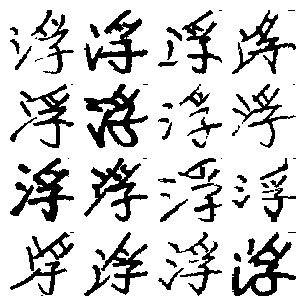 浮浮浮浮
浮浮浮浮
浮浮浮浮
浮浮浮浮